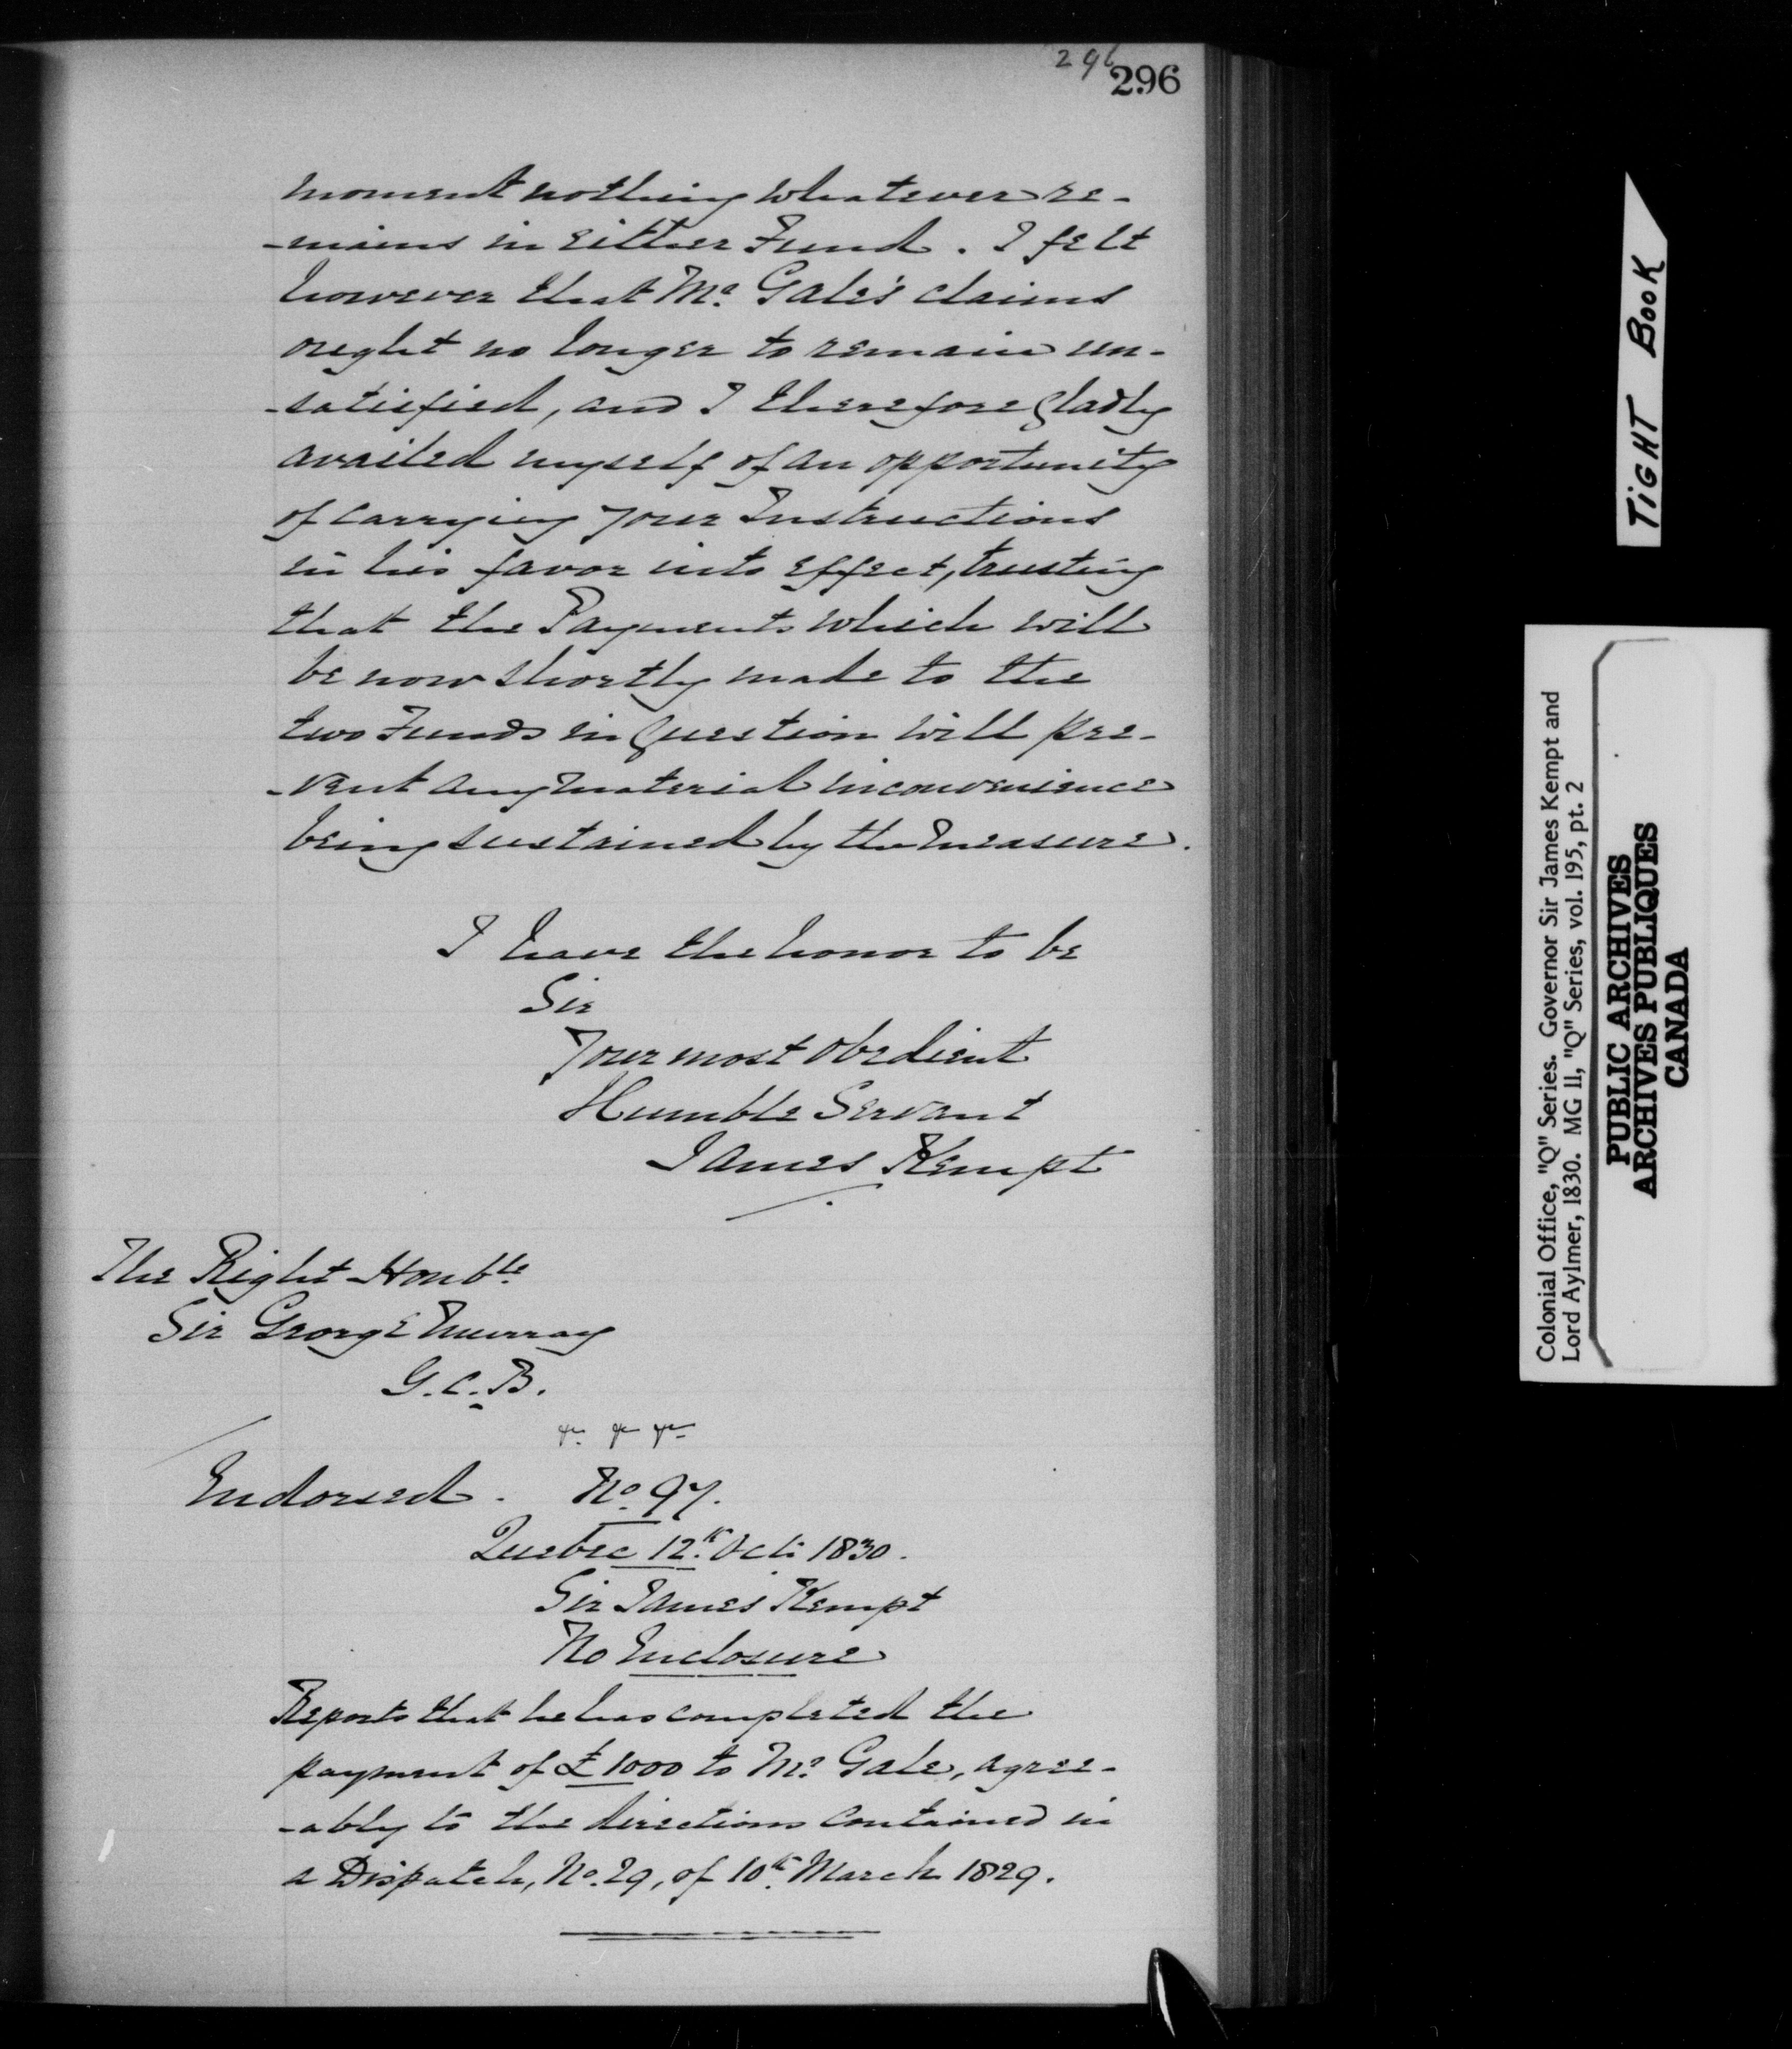 296
296
moment nothing whatever re-
-mains in either Fund. I felt
however that Mr. Gale's claims
ought no longer to remain un-
-satisfied, and I therefore gladly
availed myself of an opportunity
of carrying your Instructions
in his favor into effect, trusting
that the Payments which will
be now shortly made to the
two Funds in question will pre-
-vent any material inconvenience
being sustained by the measure.
I have the honor to be
Sir
Your most obedient
Humble Servant
James Kempt
The Right Honble
Sir George Murray
G.C.B.
&c. &c. &c.
Endorsed. No. 97.
Quebec 12th Octr 1830.
Sir James Kempt
No Enclosure
Reports that he has completed the
payment of £1000 to Mr. Gale, agree-
-ably to the directions contained in
a Dispatch, No. 29, of 10th March 1829.
TIGHT BOOK
Colonial Office, "Q" Series. Governor Sir James Kempt and
Lord Aylmer, 1830. MG 11, "Q" Series, vol. 195, pt. 2
PUBLIC ARCHIVES
ARCHIVES PUBLIQUES
CANADA